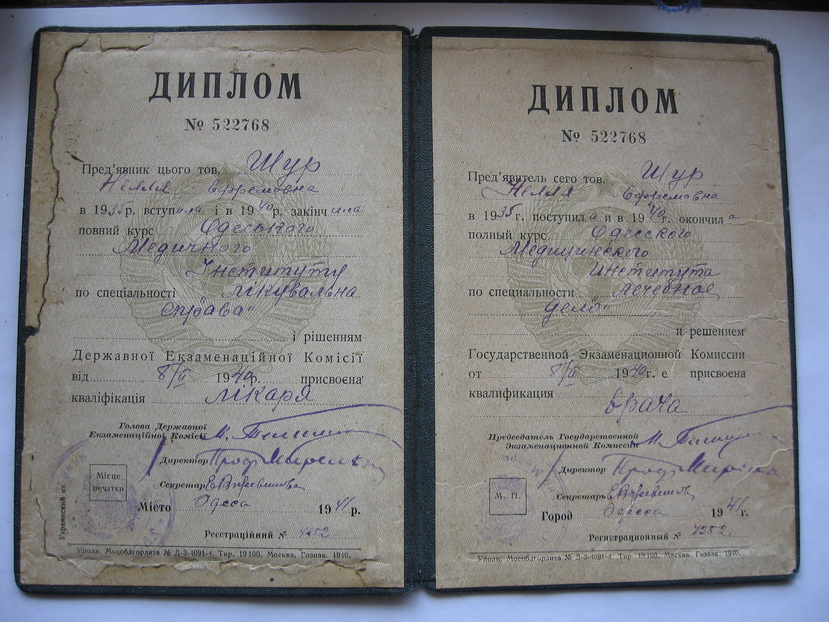 ДИПЛОМ
№ 522768
Пред'явник цього тов. Шур
Нелля Ефремовна
в 1935р. вступила і в 1940р. закінчила
повний курс Одеського
Медичного
Інституту
по спеціальності „Лікувальна
справа"
і рішенням
Державної Екзаменаційної Комісії
від 8/II 1940р. присвоєна
кваліфікація Лікаря
Голова Державної
Екзаменаційної Комісії
Директор Проф.
Секретар
Місце
печатки
Місто Одесса 1941 р.
Реєстраційний № 4352
Украинский яз.
Уполн. Мособлгорлита № Д-3-4091-4. Тир. 19100. Москва. Гознак. 1940.
ДИПЛОМ
№ 522768
Пред'явитель сего тов. Шур
Нелля Ефремовна
в 1935г. поступила и в 1940г. окончила
полный курс Одесского
Медицинского
Института
по специальности „Лечебное
дело"
и решением
Государственной Экзаменационной Комиссии
от 8/II 1940г.е присвоена
квалификация врача
Председатель Государственной
Экзаменационной Комиссии
Директор Проф.
Секретарь
М. П.
Город Одесса 1941г.
Регистрационный № 4352
Уполн. Мособлгорлита № Д-3-4091-4. Тир. 19100. Москва. Гознак. 1940.